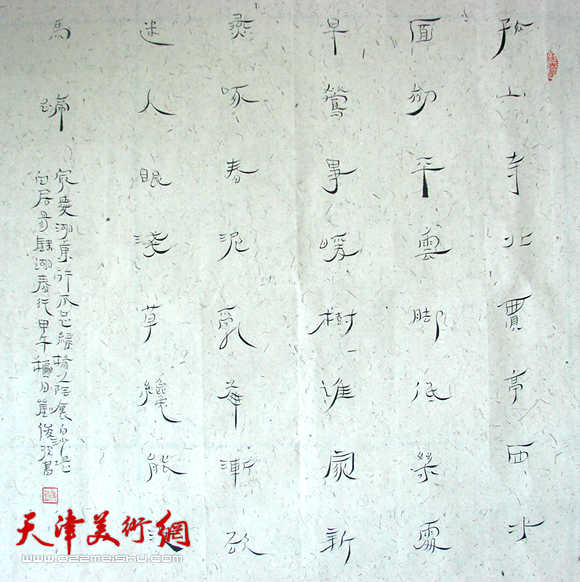 孤山寺北賈亭西水
面初平雲脚低幾處
早鶯爭暖樹誰家新
燕啄春泥乱華漸欲
迷人眼淺草纔能
馬蹄
㝡愛湖東行不足綠楊之陰裏白沙堤
白居易 湖春行甲午穐月 俊 書
天津美術網
www.022meishu.com